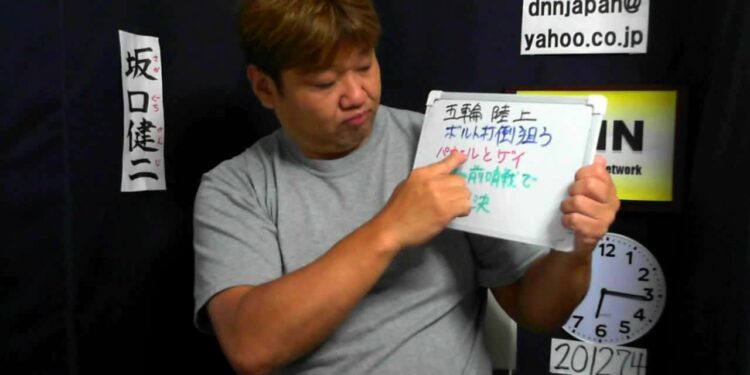 dnnjapan@
yahoo.co.jp
坂口健二
さかぐちけんじ
五輪 陸上
ボルト打倒狙う
とゲイ
前哨戦で
決
NN
etwork
12
1
2
3
4
5
6
7
201274